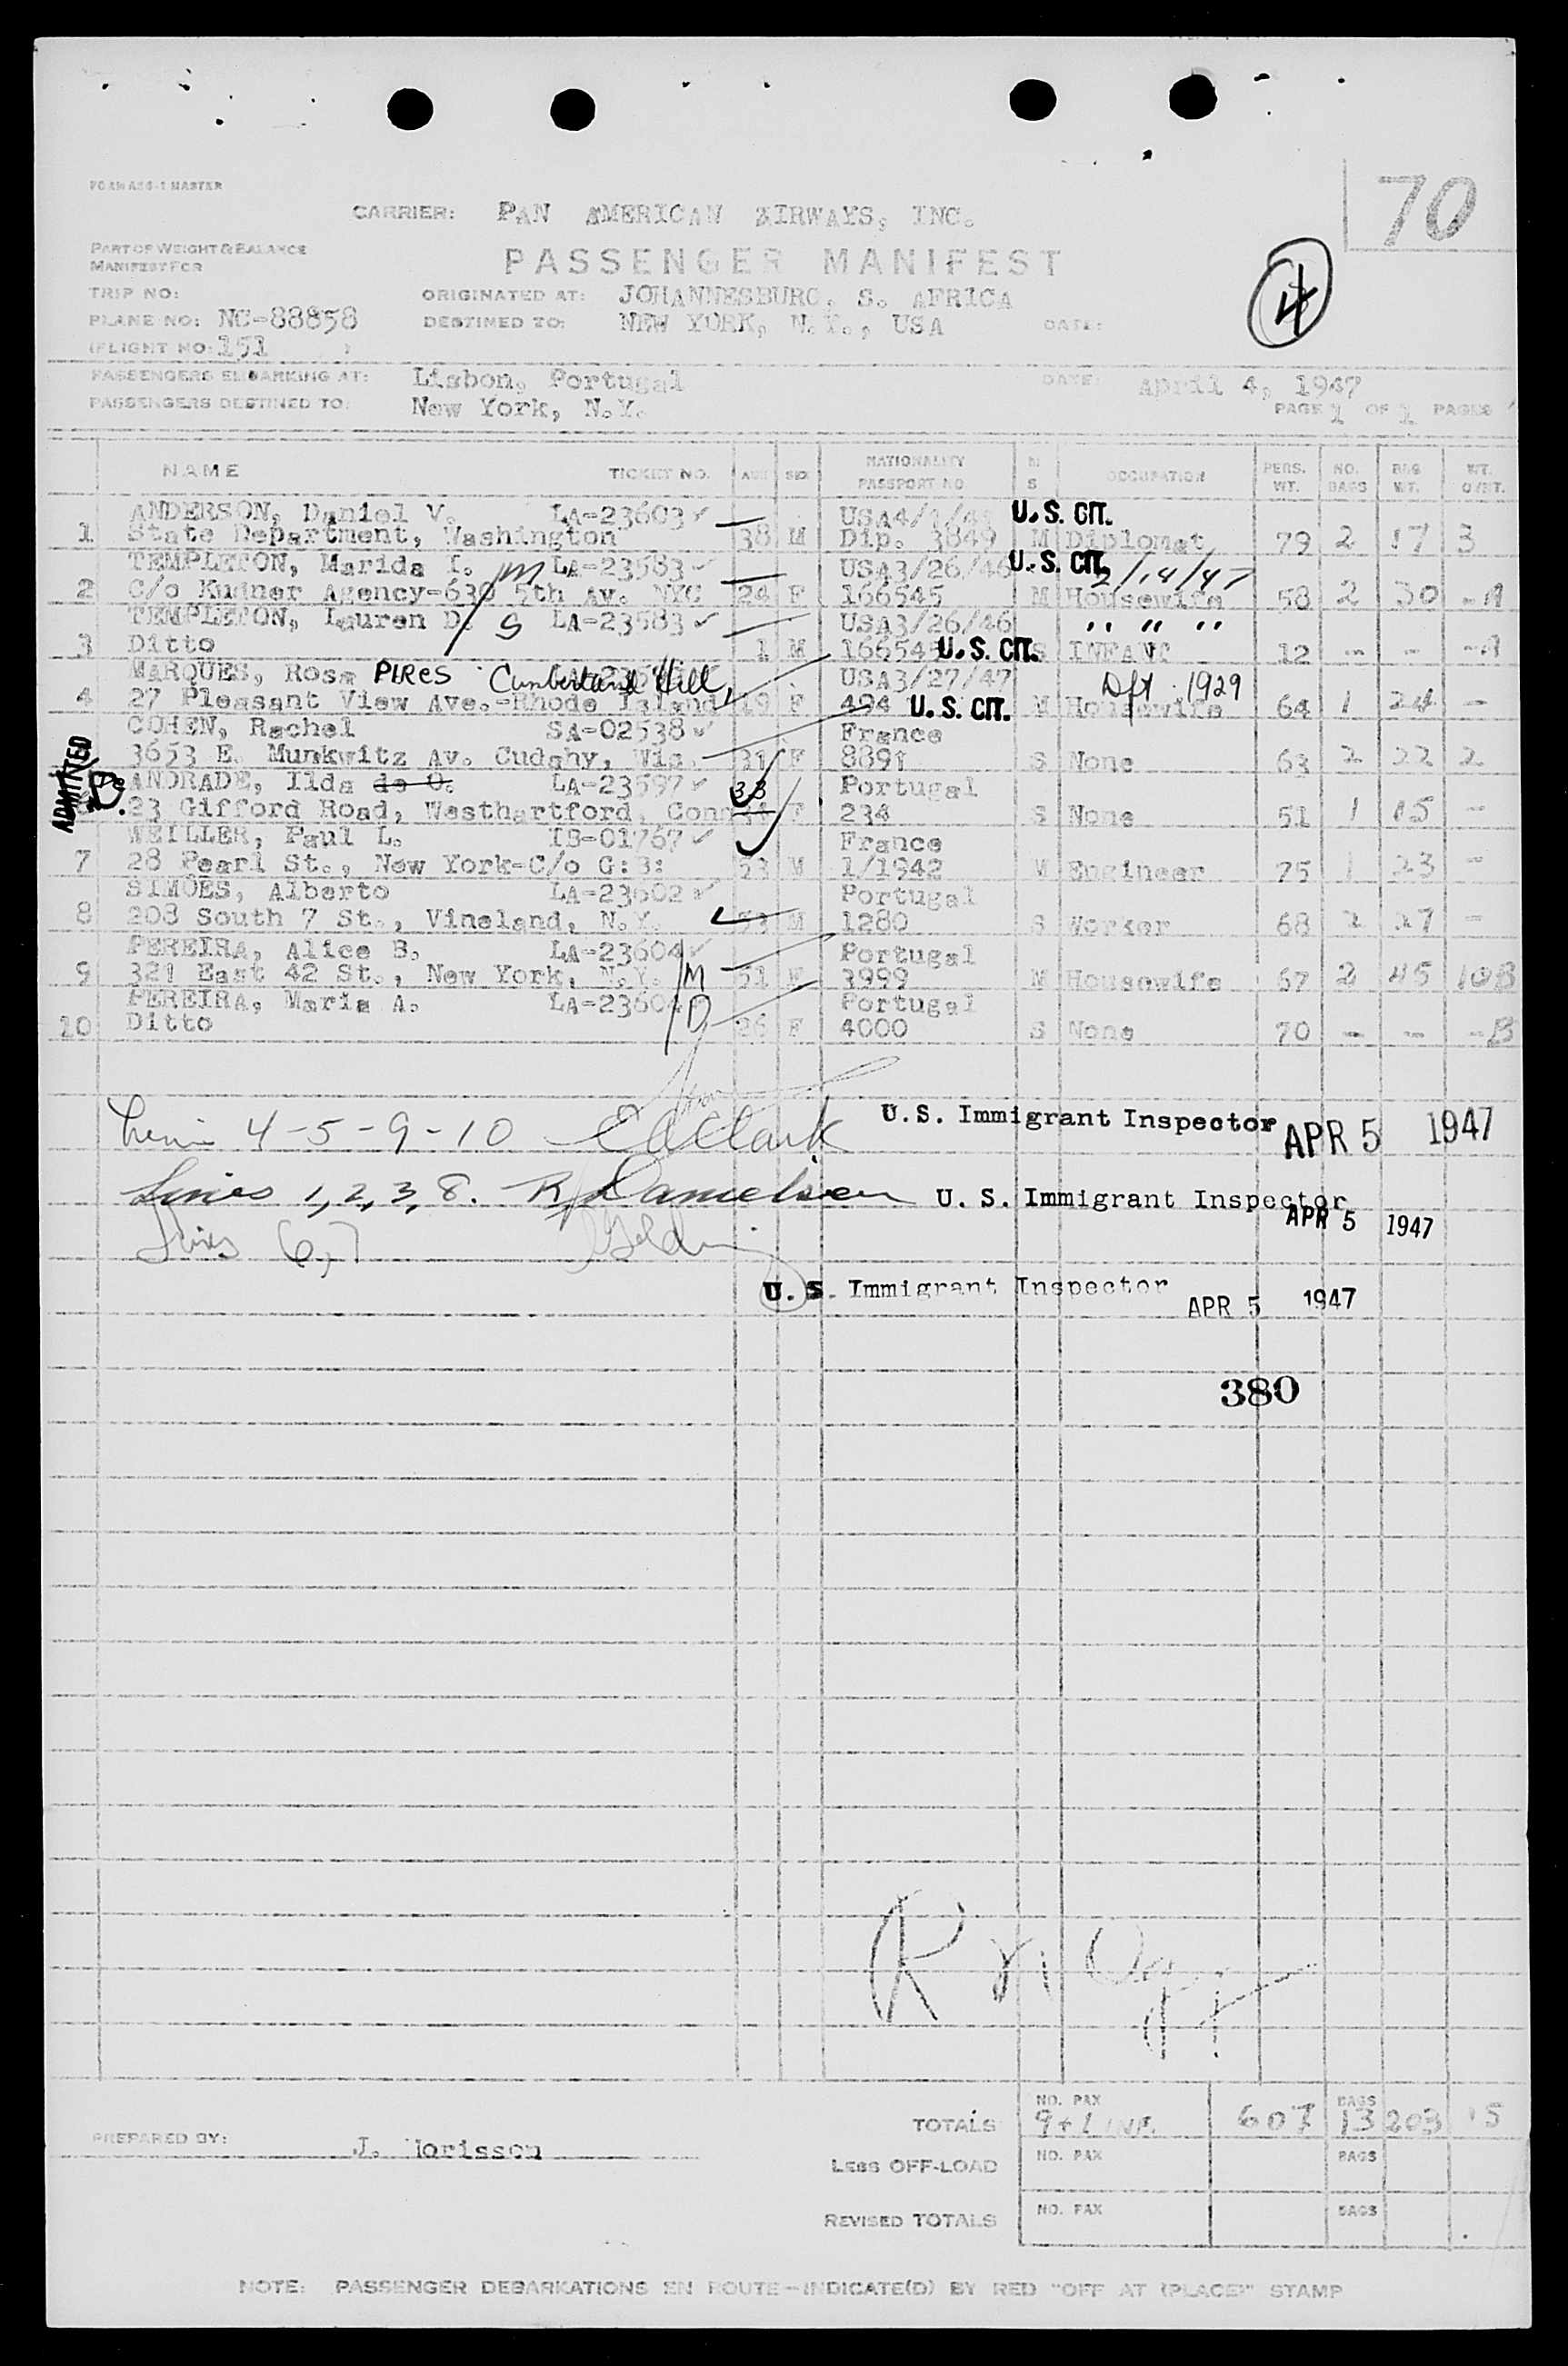 FORM A26-1 MASTER
70
CARRIER: PAN AMERICAN AIRWAYS, INC.
PART OF WEIGHT & BALANCE
MANIFEST FOR
PASSENGER MANIFEST
4
TRIP NO:
ORIGINATED AT: JOHANNESBURG, S. AFRICA
PLANE NO: NC-88858
DESTINED TO: NEW YORK, N.Y., USA DATE:
(FLIGHT NO: 151 )
PASSENGERS EMBARKING AT: Lisbon, Portugal DATE: April 4, 1947
PASSENGERS DESTINED TO: New York, N.Y. PAGE 1 OF 1 PAGES
NAME TICKET NO. AGE SEX NATIONALITY PASSPORT NO M S OCCUPATION PERS. WT. NO. BAGS BAG WT. WT. OVRT.
ANDERSON, Daniel V. LA-23603 USA4/ U.S. CIT.
1 State Department, Washington 38 M Dip. 3849 M Diplomat 79 2 17 3
TEMPLETON, Marida I. M LA-23583 USA3/26/46 U.S. CIT. 2/14/47
2 C/o Kudner Agency-630 5th Av. NYC 24 F 166545 M Housewife 58 2 30 -A
TEMPLETON, Lauren D. S LA-23583 USA3/26/46 " " "
3 Ditto 1 M 166545 U.S. CIT. S INFANT 12 - - -A
MARQUES, Rosa PIRES Cumberland Hill, USA3/27/47 Dft 1929
4 27 Pleasant View Ave.-Rhode Island 19 F 494 U.S. CIT. M Housewife 64 1 24 -
COHEN, Rachel SA-02538 France
3653 E. Munkwitz Av. Cudahy, Wis. 21 F 8891 S None 63 2 22 2
ADMITTED
ANDRADE, Ilda de O. LA-23597 33 Portugal
23 Gifford Road, Westhartford, Conn F 234 S None 51 1 15 -
WEILLER, Paul L. IS-01767 France
7 28 Pearl St., New York-C/o G:B: 53 M 1/1942 M Engineer 75 1 23 -
SIMÕES, Alberto LA-23602 Portugal
8 208 South 7 St., Vineland, N.Y. 53 M 1280 S Worker 68 2 27 -
PEREIRA, Alice B. LA-23604 Portugal
9 321 East 42 St., New York, N.Y. M 51 F 3999 M Housewife 67 2 45 10B
PEREIRA, Maria A. LA-23604 D Portugal
10 Ditto 26 F 4000 S None 70 - - -B
4-5-9-10 E A Clark U.S. Immigrant Inspector APR 5 1947
Lines 1, 2, 3, 8. R Danielsen U.S. Immigrant Inspector APR 5 1947
Lines 6, 7
U.S. Immigrant Inspector APR 5 1947
380
TOTALS NO. PAX 9+1 INF. 607 BAGS 13 203 15
PREPARED BY: J. Morisson
LESS OFF-LOAD NO. PAX BAGS
REVISED TOTALS NO. PAX BAGS
NOTE: PASSENGER DEBARKATIONS EN ROUTE-INDICATE(D) BY RED "OFF AT (PLACE)" STAMP